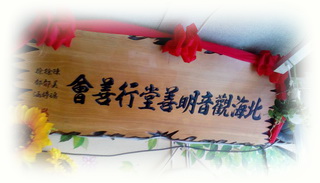 北海觀音明善堂行善會